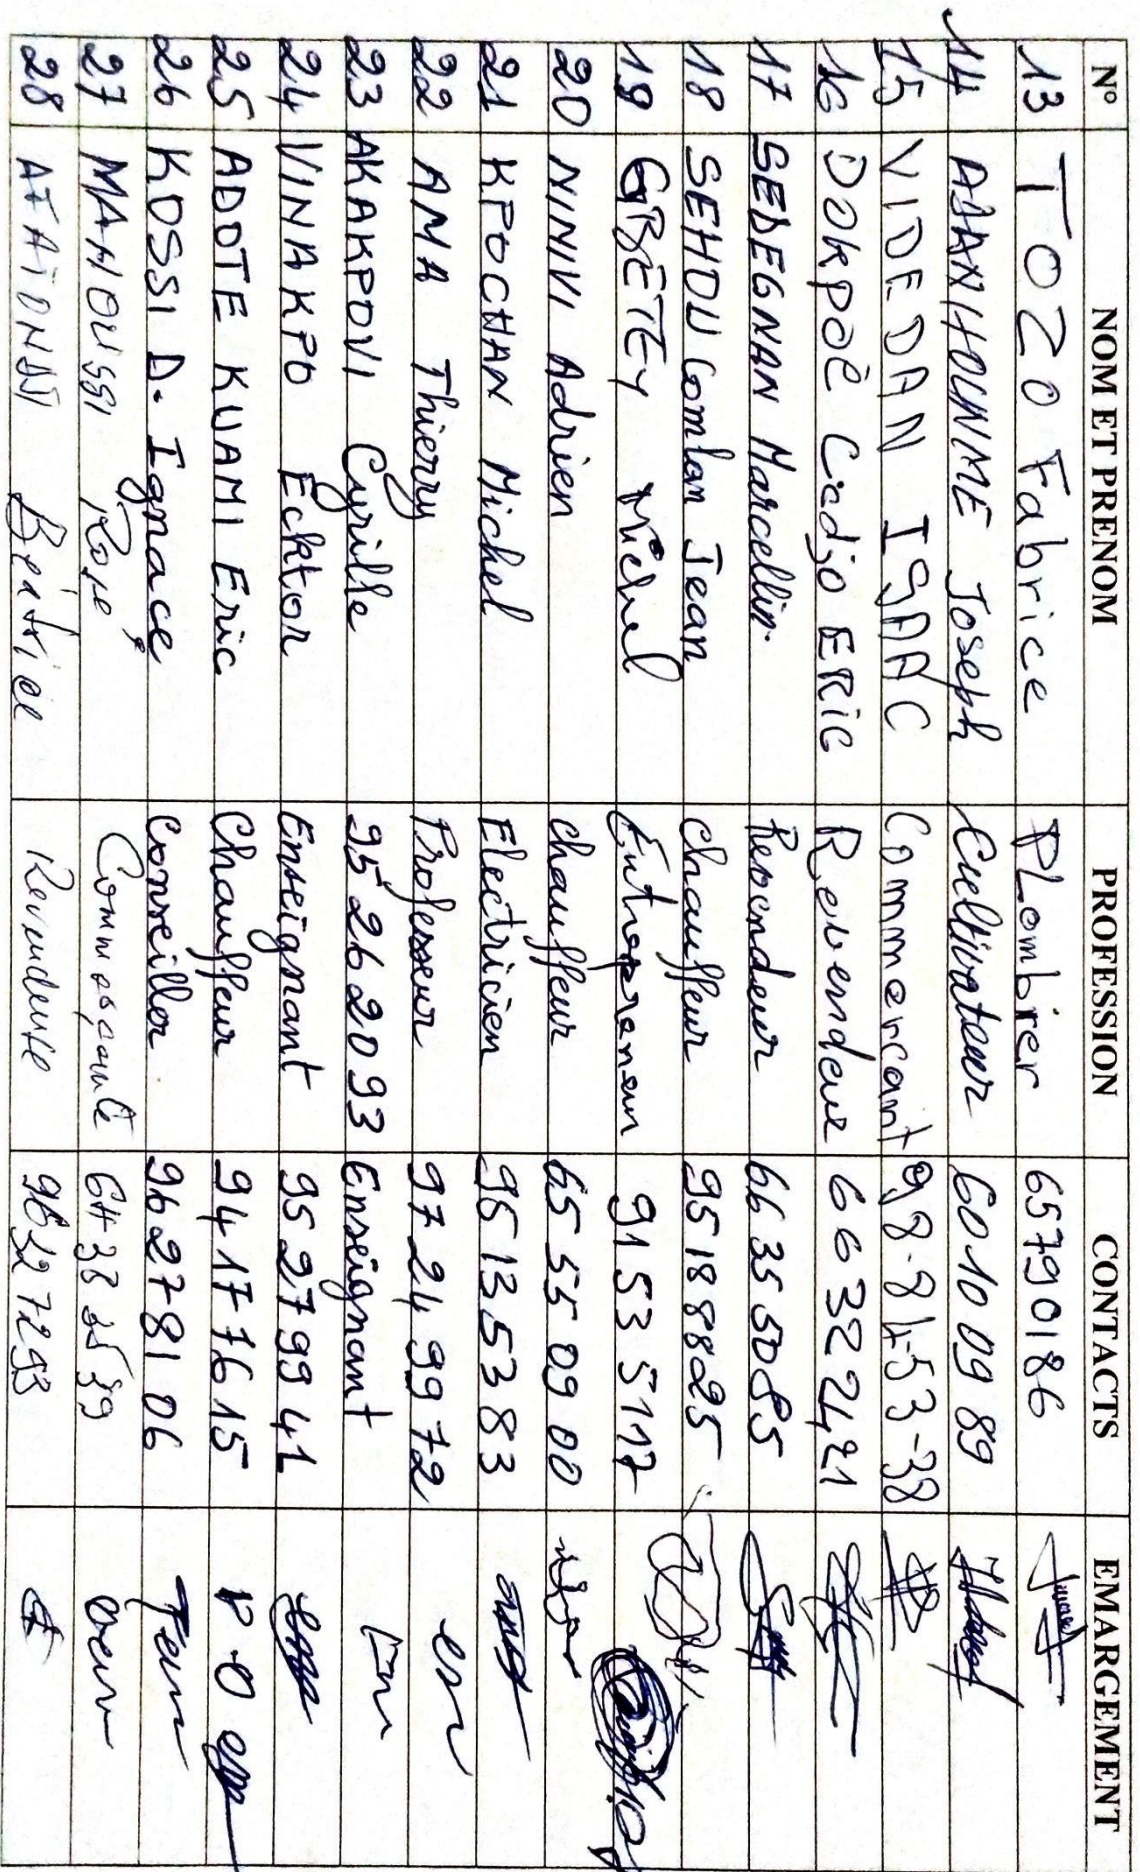 N° NOM ET PRENOM PROFESSION CONTACTS EMARGEMENT
13 TOZO Fabrice PLombier 65790186
14 ADANHOUNME Joseph Cultivateur 60 10 09 89
15 VIDEDAN ISAAC Commercant 98-84-53-38
16 Dokpoè Codjo ERIC Revendeur 66 32 24 21
17 SEDEGNAN Marcellin Revendeur 66 35 50 85
18 SEHOU Comlan Jean chauffeur 95 18 88 25
19 GBETEY Michel Entrepreneur 91 53 51 17
20 NINIVI Adrien chauffeur 65 55 09 00
21 KPOCHAN Michel Electricien 95 13 53 83
22 AMA Thierry Professeur 97 24 99 72
23 AKAKPOVI Cyrille 95 26 20 93 Enseignant
24 VINAKPO Ecktor Enseignant 95 27 99 41
25 ADOTE KUAMI Eric Chauffeur 94 17 76 15
26 KOSSI D. Ignace Conseiller 96 27 81 06
27 Rose
28 Béatrice Revendeuse 96 32 72 93